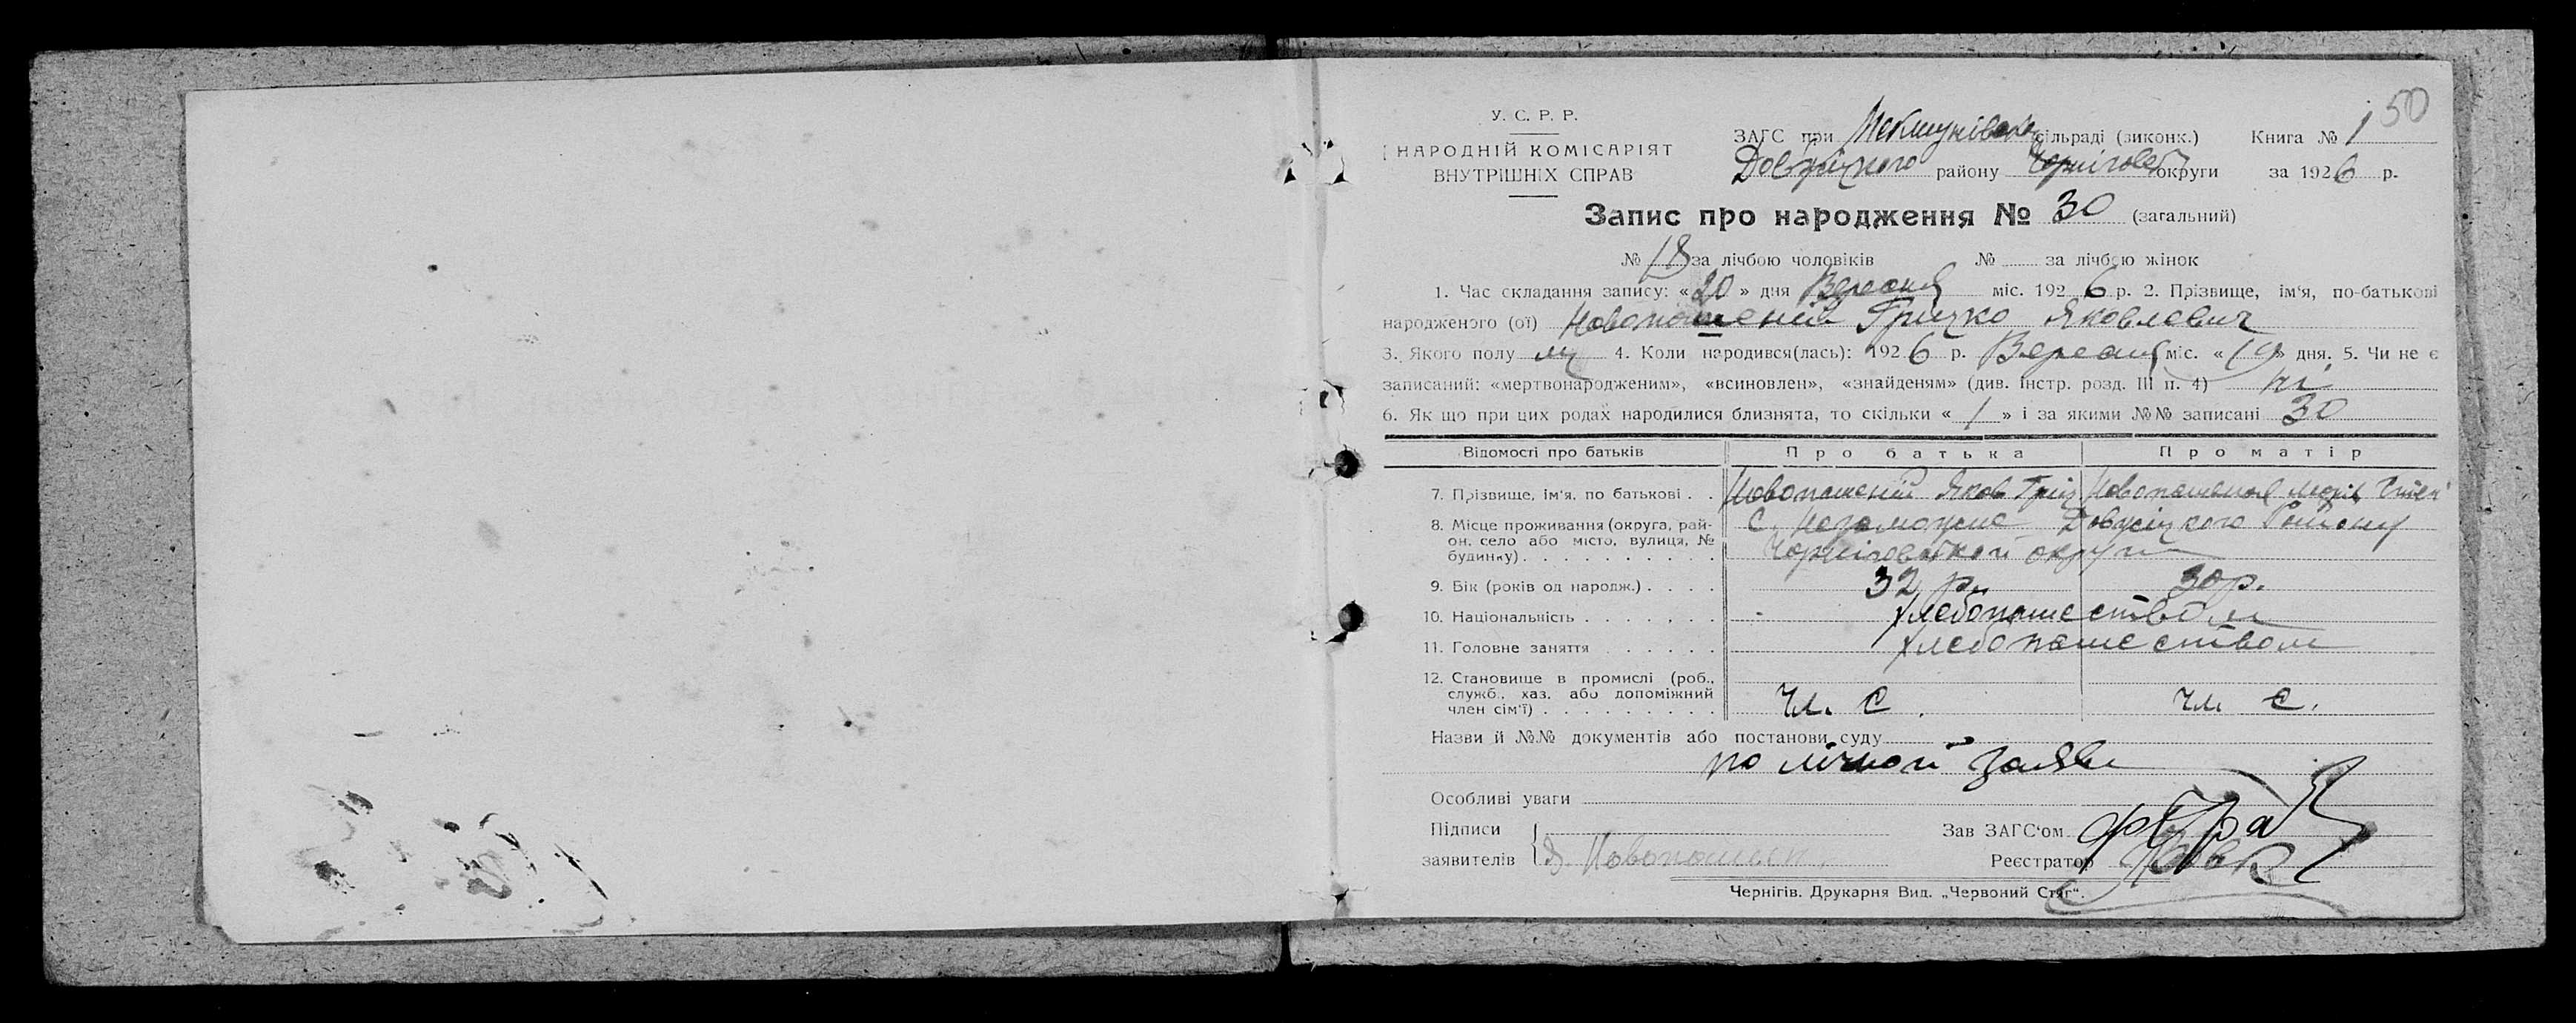 50
У. С. Р. Р.
НАРОДНІЙ КОМІСАРІЯТ
ВНУТРІШНІХ СПРАВ
ЗАГС при сільраді (виконк.) Книга № 1
району округи за 1926 р.
Запис про народження № 30 (загальний)
№ 18 за лічбою чоловіків № за лічбою жінок
1. Час складання запису: «20» дня Вересня міс. 1926 р. 2. Прізвище, ім'я, по-батькові
народженого (ої) Новопашений Грицко Яковлевич
3. Якого полу 4. Коли народився(лась): 1926 р. Вересня міс. «19» дня. 5. Чи не є
записаний: «мертвонародженим», «всиновлен», «знайденям» (див. Інстр. розд. III п. 4) ні
6. Як що при цих родах народилися близнята, то скільки «1» і за якими №№ записані 30
Відомості про батьків Про батька Про матір
7. Прізвище, ім'я, по батькові . . Новопашений Яков Гриц Новопашеная
8. Місце проживання (округа, рай-
он, село або місто, вулиця, №
будинку) . . . . . . . . . .
с.
округи
9. Вік (років од народж.) . . . . 32 р. 30 р.
10. Національність . . . . . . . хлебопашеством
11. Головне заняття . . . . . . хлебопашеством
12. Становище в промислі (роб.,
служб., хаз. або допоміжний
член сім'ї) . . . . . . . . . Чл. С. Чл. С.
Назви й №№ документів або постанови суду
по лічной заяви
Особливі уваги
Підписи
заявителів Я. Новопашен
Зав ЗАГС'ом
Реєстратор
Чернігів. Друкарня Вид. „Червоний Стяг".